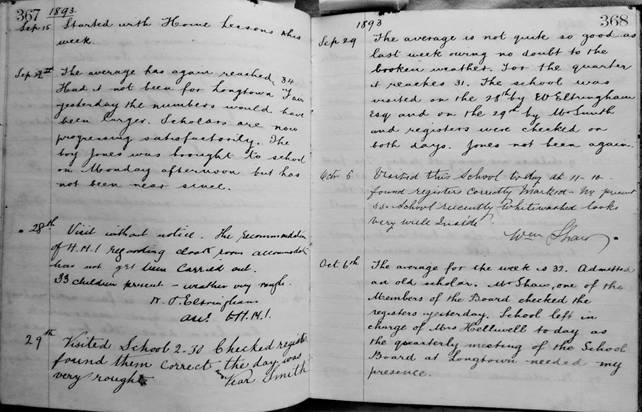 367 1893.
Sep 15 Started with Home Lessons this
week.
Sep 22nd The average has again reached 34.
Had it not been for Longtown Fair
yesterday the numbers would have
been larger. Scholars are now
progressing satisfactorily. The
boy Jones was brought to school
on Monday afternoon but has
not been near since.
28th Visit without notice. The recommendation
of H.M.I regarding cloak room accommodation
has not yet been carried out.
33 children present - weather very rough.
W. P. Eltringham
H.M.I.
29th Visited School 2-30 Checked registers
found them correct - the day was
very rough Smith
1893 368
Sep 29 The average is not quite so good as
last week owing no doubt to the
broken weather. For the quarter
it reaches 31. The school was
visited on the 28th by W Eltringham
Esq and on the 29th by Mr Smith
and registers were checked on
both days. Jones not been again.
Oct 5 Visited this School today at 11-10
found registers Correctly Marked - No present
33 - School recently Whitewashed looks
very well Inside
Wm Shaw
Oct 6th The average for the week is 32. Admitted
an old scholar. Mr Shaw, one of the
Members of the Board checked the
registers yesterday. School left in
charge of Mrs Hollwell today as
the quarterly meeting of the School
Board at Longtown needed my
presence.